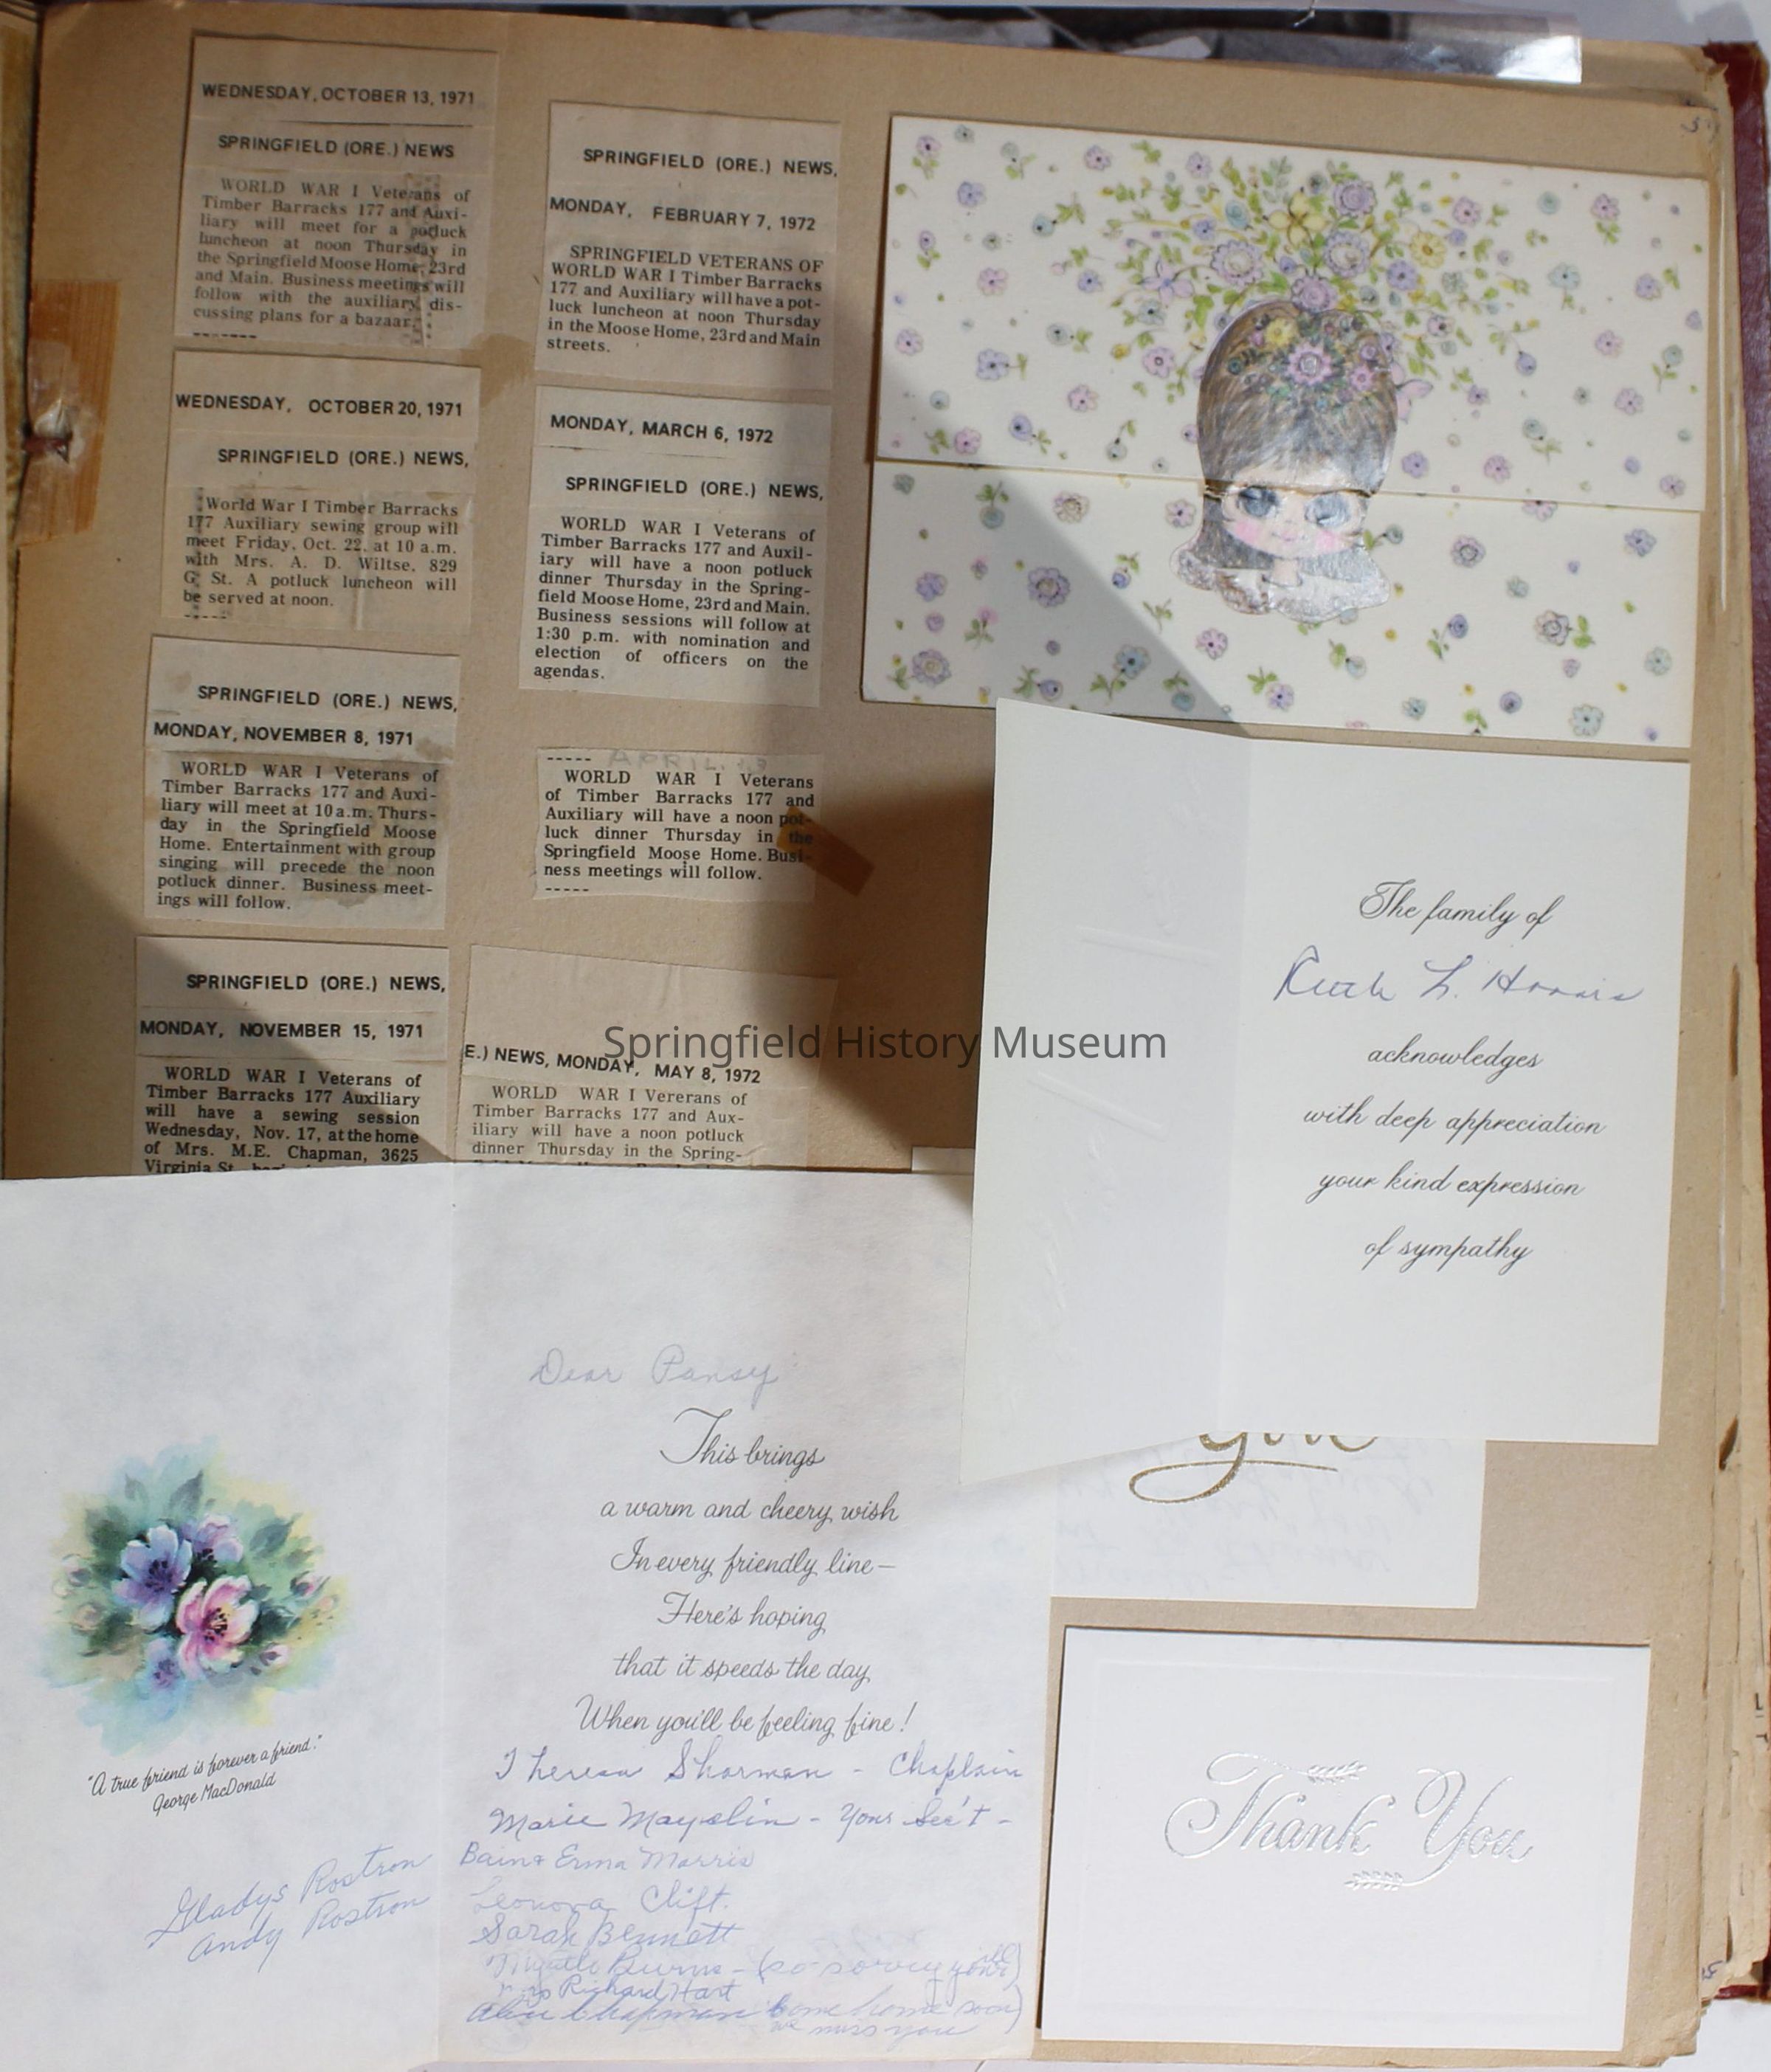 WEDNESDAY, OCTOBER 13, 1971
SPRINGFIELD (ORE.) NEWS
WORLD WAR I Veterans of
Timber Barracks 177 and Auxi-
liary will meet for a potluck
luncheon at noon Thursday in
the Springfield Moose Home, 23rd
and Main. Business meetings will
follow with the auxiliary dis-
cussing plans for a bazaar.
WEDNESDAY, OCTOBER 20, 1971
SPRINGFIELD (ORE.) NEWS,
World War I Timber Barracks
177 Auxiliary sewing group will
meet Friday, Oct. 22, at 10 a.m.
with Mrs. A. D. Wiltse, 829
G St. A potluck luncheon will
be served at noon.
SPRINGFIELD (ORE.) NEWS,
MONDAY, NOVEMBER 8, 1971
WORLD WAR I Veterans of
Timber Barracks 177 and Auxi-
liary will meet at 10 a.m. Thurs-
day in the Springfield Moose
Home. Entertainment with group
singing will precede the noon
potluck dinner. Business meet-
ings will follow.
SPRINGFIELD (ORE.) NEWS,
MONDAY, NOVEMBER 15, 1971
WORLD WAR I Veterans of
Timber Barracks 177 Auxiliary
will have a sewing session
Wednesday, Nov. 17, at the home
of Mrs. M.E. Chapman, 3625
Virginia St.
SPRINGFIELD (ORE.) NEWS,
MONDAY, FEBRUARY 7, 1972
SPRINGFIELD VETERANS OF
WORLD WAR I Timber Barracks
177 and Auxiliary will have a pot-
luck luncheon at noon Thursday
in the Moose Home, 23rd and Main
streets.
MONDAY, MARCH 6, 1972
SPRINGFIELD (ORE.) NEWS,
WORLD WAR I Veterans of
Timber Barracks 177 and Auxil-
iary will have a noon potluck
dinner Thursday in the Spring-
field Moose Home, 23rd and Main.
Business sessions will follow at
1:30 p.m. with nomination and
election of officers on the
agendas.
APRIL
WORLD WAR I Veterans
of Timber Barracks 177 and
Auxiliary will have a noon pot-
luck dinner Thursday in the
Springfield Moose Home. Busi-
ness meetings will follow.
E.) NEWS, MONDAY, MAY 8, 1972
WORLD WAR I Vererans of
Timber Barracks 177 and Aux-
iliary will have a noon potluck
dinner Thursday in the Spring-
The family of
Ruth L. Harris
acknowledges
with deep appreciation
your kind expression
of sympathy
Springfield History Museum
you
Thank You
"A true friend is forever a friend."
George MacDonald
Gladys Rostron
Andy Rostron
Dear Pansy
This brings
a warm and cheery wish
In every friendly line—
Here's hoping
that it speeds the day
When you'll be feeling fine!
Theresa Sharman - Chaplain
Marie - Your Sec't -
Erma Morris
Leonora Clift.
Sarah Bennett
Myrtle Burns - (so sorry
Mrs Richard Hart
Chapman come home soon)
we miss you